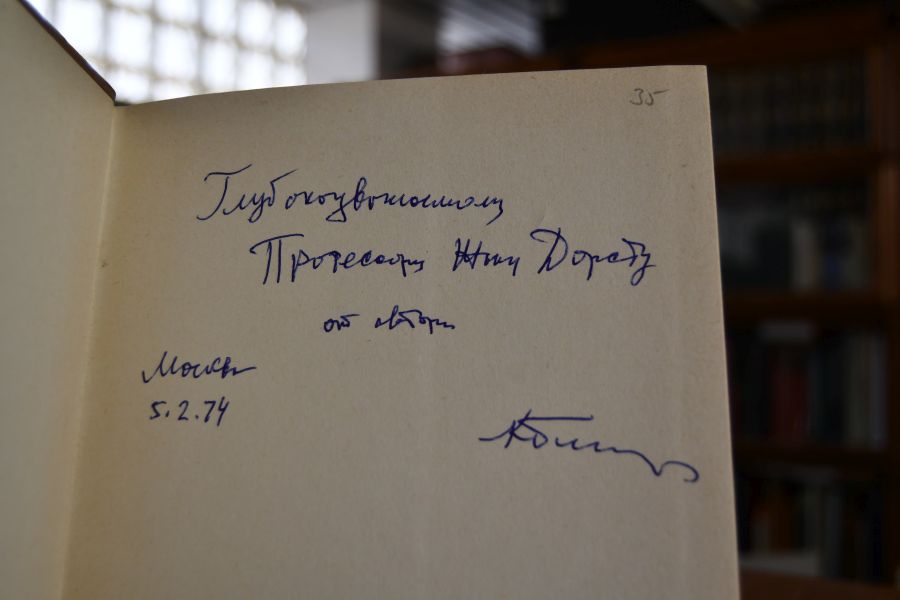 35
Глубокоуважаемому
Профессору Жану Дорсту
от автора
Москва
5.2.74